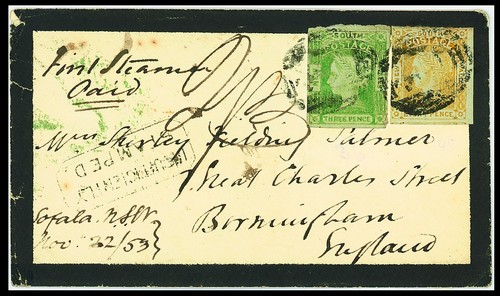 First Steamer
Paid
SOUTH
POSTAGE
THREE PENCE
POSTAGE
PENCE
Mrs Shirley Fielding Palmer
Great Charles Street
Birmingham
England
INSUFFICIENTLY
STAMPED
Sofala. N.S.W.
Nov. 22/53